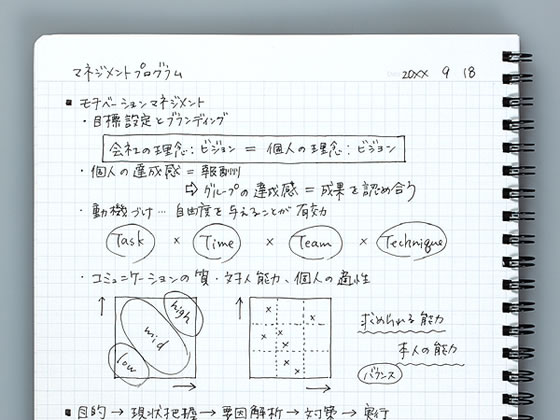 マネジメントプログラム 20XX 9 18
■ モチベーションマネジメント
・目標設定とブランディング
会社の理念:ビジョン = 個人の理念:ビジョン
・個人の達成感 = 報酬
⇨ グループの達成感 = 成果を認め合う
・動機づけ… 自由度を与えることが有効
Task × Time × Team × Technique
・コミュニケーションの質・対人能力、個人の適性
high
mid
low
求められる能力
本人の能力
バランス
■ 目的 → 現状把握 → 要因解析 → 対策 → 実行